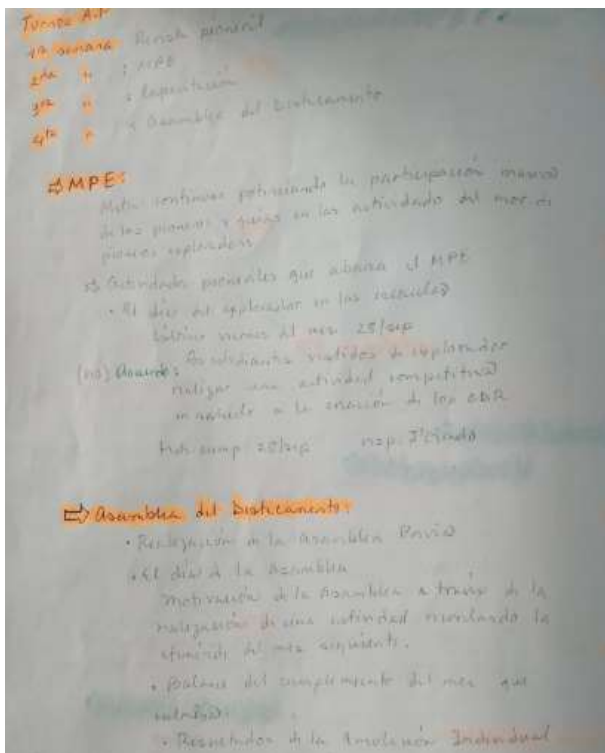 1ra semana: Revista pioneril
2da " : MPE
3ra " : Capacitación
4ta " : Asamblea del Destacamento
⇨ MPE:
continuar potenciando la participación masiva
de los pioneros y guías en las actividades del mov. de
pioneros exploradores
Actividades pioneriles que abarca el MPE
• El día del explorador en las escuelas
último viernes del mes 28/sep
(no) Acuerdo: estudiantes vestidos de explorador
realizar una actividad competitiva
en saludo a la creación de los CDR
Fech cump 28/sep resp: J'
⇨ Asamblea del Destacamento:
• Realización de la Asamblea Previa
• El día de la Asamblea
motivación de la Asamblea a través de la
realización de una actividad recordando la
efeméride del mes siguiente.
• Balance del cumplimiento del mes que
• Resultados de la Emulación Individual